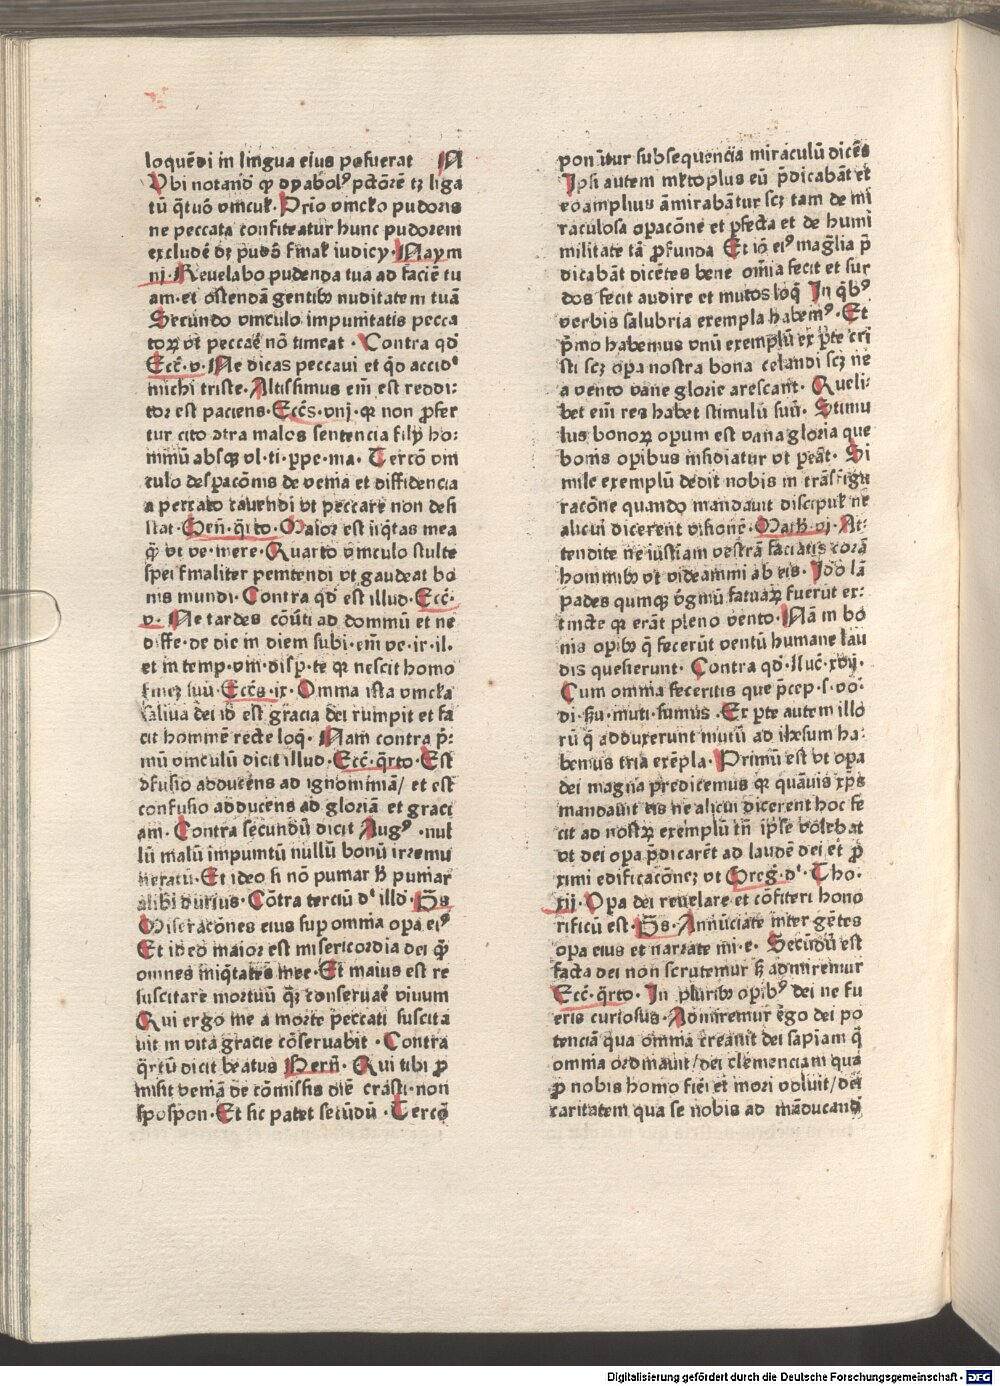 loquēdi in lingua eius posuerat A
Vbi notandū ꝙ dyabolꝰ pctōrē tꝫ liga
tū q̄tuor̄ vincul̕. Prīo vinclo pudoris
ne peccata confiteatur hunc pudorem
excludē dꝫ pudor̄ final̕ iudicij. Naym
iij. Reuelabo pudenda tua ad faciē tu
am. et ostendā gentibꝰ nuditatem tuā
Secundo vinculo impunitatis pecca
torꝝ vt peccare nō timeat. Contra qd̄
Ecc̄. v. Ne dicas peccaui et qd̄ accidᵗ
michi triste. Altissimus em̄ est reddi-
tor est paciens. Ecc̄s. viij. qꝛ non ꝓfer
tur cito ɔtra malos sentencia filij ho:
minū absqꝫ vl. ti. ꝑpe. ma. Tercō vin
culo despacōnis de venia et diffidencia
a peccato cauendi vt peccare non desi
stat. Gen̄. q̄rto. Maior est iiq̄tas mea
q̄ vt ve. mere. Quarto vinculo stulte
spei finaliter penitendi vt gaudeat bo
nis mundi. Contra qd̄ est illud. Ecc̄.
v. Ne tardes cōūti ad dominū et ne
diffe. de die in diem subi. em̄ ve. ir. il.
et in temp. vin. disp. te qꝛ nescit homo
fineꝫ suū. Ecc̄s. ix. Omnia ista vincla
saliua dei id est gracia dei rumpit et fa
cit hominē recte loq̄. Nam contra p̄:
mū vinculū dicit illud. Ecc̄. q̄rto. Est
ɔfusio adducens ad ignominiā/ et est
confusio adducens ad gloriā et graci
am. Contra secundū dicit Augꝰ. nul
lū malū impunitū nullū bonū irremu
neratū. Et ideo si nō puniar hic puniar
alibi durius. Cōtra terciū dᵗ illō. P̄s
Miseracōnes eius sup omnia opa eiꝰ
Et ideo maior est misericordia dei q̄
omnes iniq̄tates mee. Et maius est re
suscitare mortuū q̄ꝫ conseruare viuum
Qui ergo me a morte peccati suscita
uit in vita gracie cōseruabit. Contra
q̄rtū dicit beatus Bern̄. Qui tibi ꝓ
misit veniā de cōmissis diē crasti. non
spospon. Et sic patet secūdū. Tercō
ponūtur subsequencia miraculū dicēs
Ipsi autem mlctoplus eū p̄dicabāt et
eo amplius āmirabātur scꝫ tam de mi
raculosa opacōne et ꝑfecta et de humi
militate tā ꝓfunda Et iō eiꝰ mag̅lia p̄
dicabāt dicētes bene oīa fecit et sur
dos fecit audire et mutos loq̄ In q̄bꝰ
verbis salubria exempla habemꝰ. Et
p̄mo habemus vnū exemplū ex ꝑte cri
sti scꝫ opa nostra bona celandi scꝫ ne
a vento vane glorie arescant. Queli:
bet em̄ res habet stimulū suū. Stimu
lus bonorꝝ opum est vana gloria que
bonis opibus insidiatur vt peāt. Si
mile exemplū dedit nobis in trāsfigu
racōne quando mandauit discipul̕ ne
alicui dicerent visionē. Math̄ vj. At:
tendite ne iusticiam vestrā faciatis corā
hominibꝰ vt videamini ab eis. Ido lā
pades qumqꝫ v̄ginū fatuaꝝ fuerūt ex:
tincte qꝛ erāt pleno vento. Nā in bo
nis opibꝰ q̄ fecerūt ventū humane lau
dis quesierunt. Contra qd̄. Luc̄. xvij.
Cum omnia feceritis que p̄cep. s. vo.
di. ẜu. inuti. sumus. Ex ꝑte autem illo
rū q̄ adduxerunt mutū ad ihesum ha:
bemus tria exēpla. Primū est vt opa
dei magna predicemus qꝛ quāuis xp̄s
mandauit eis ne alicui dicerent hoc fe
cit ad nostrꝝ exemplū tn̄ ipse volebat
vt dei opa p̄dicarēt ad laudē dei et ꝓ
ximi edificacōneꝫ vt Greg̅. dᵗ. Tho.
xij. Opa dei reuelare et cōfiteri hono
rificū est. P̄s. Annūciate inter gētes
opa eius et narrate mi. e. Secūdū est
facta dei non scrutemur sꝫ admiremur
Ecc̄. q̄rto. In pluribꝰ opibꝰ dei ne fu
eris curiosus. Admiremur ergo dei po
tenciā qua omnia creauit dei sapiam q̄
omnia ordinauit/ dei clemenciam qua
ꝓ nobis homo fieri et mori voluit/ dei
caritatem qua se nobis ad māducand̄
Digitalisierung gefördert durch die Deutsche Forschungsgemeinschaft - DFG